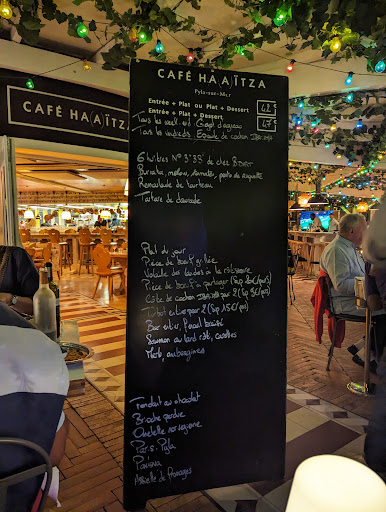 CAFÉ HA(A)ÏTZA
Pyla-sur-Mer
CAFÉ HA(A)ÏTZA
Entrée + Plat ou Plat + Dessert
Entrée + Plat + Dessert
Tous les week-end Gigot d'agneau
Tous les vendredis
de cochon
6 huîtres N°3
de chez
Burrata, melon, tomates, pesto de roquette
Remoulade de tourteau
Tartare de daurade
Plat du jour
Pièce de boeuf
Volaille des Landes à la rôtissoire
Pièce de boeuf à partager
Côte de cochon
par 2
Turbot entier par 2
Bar entier, fenouil braisé
Saumon au lard rôti, carottes
Merlu, aubergines
Fondant au chocolat
Brioche perdue
Omelette norvégienne
Paris-Pyla
Pavlova
Assiette de fromages